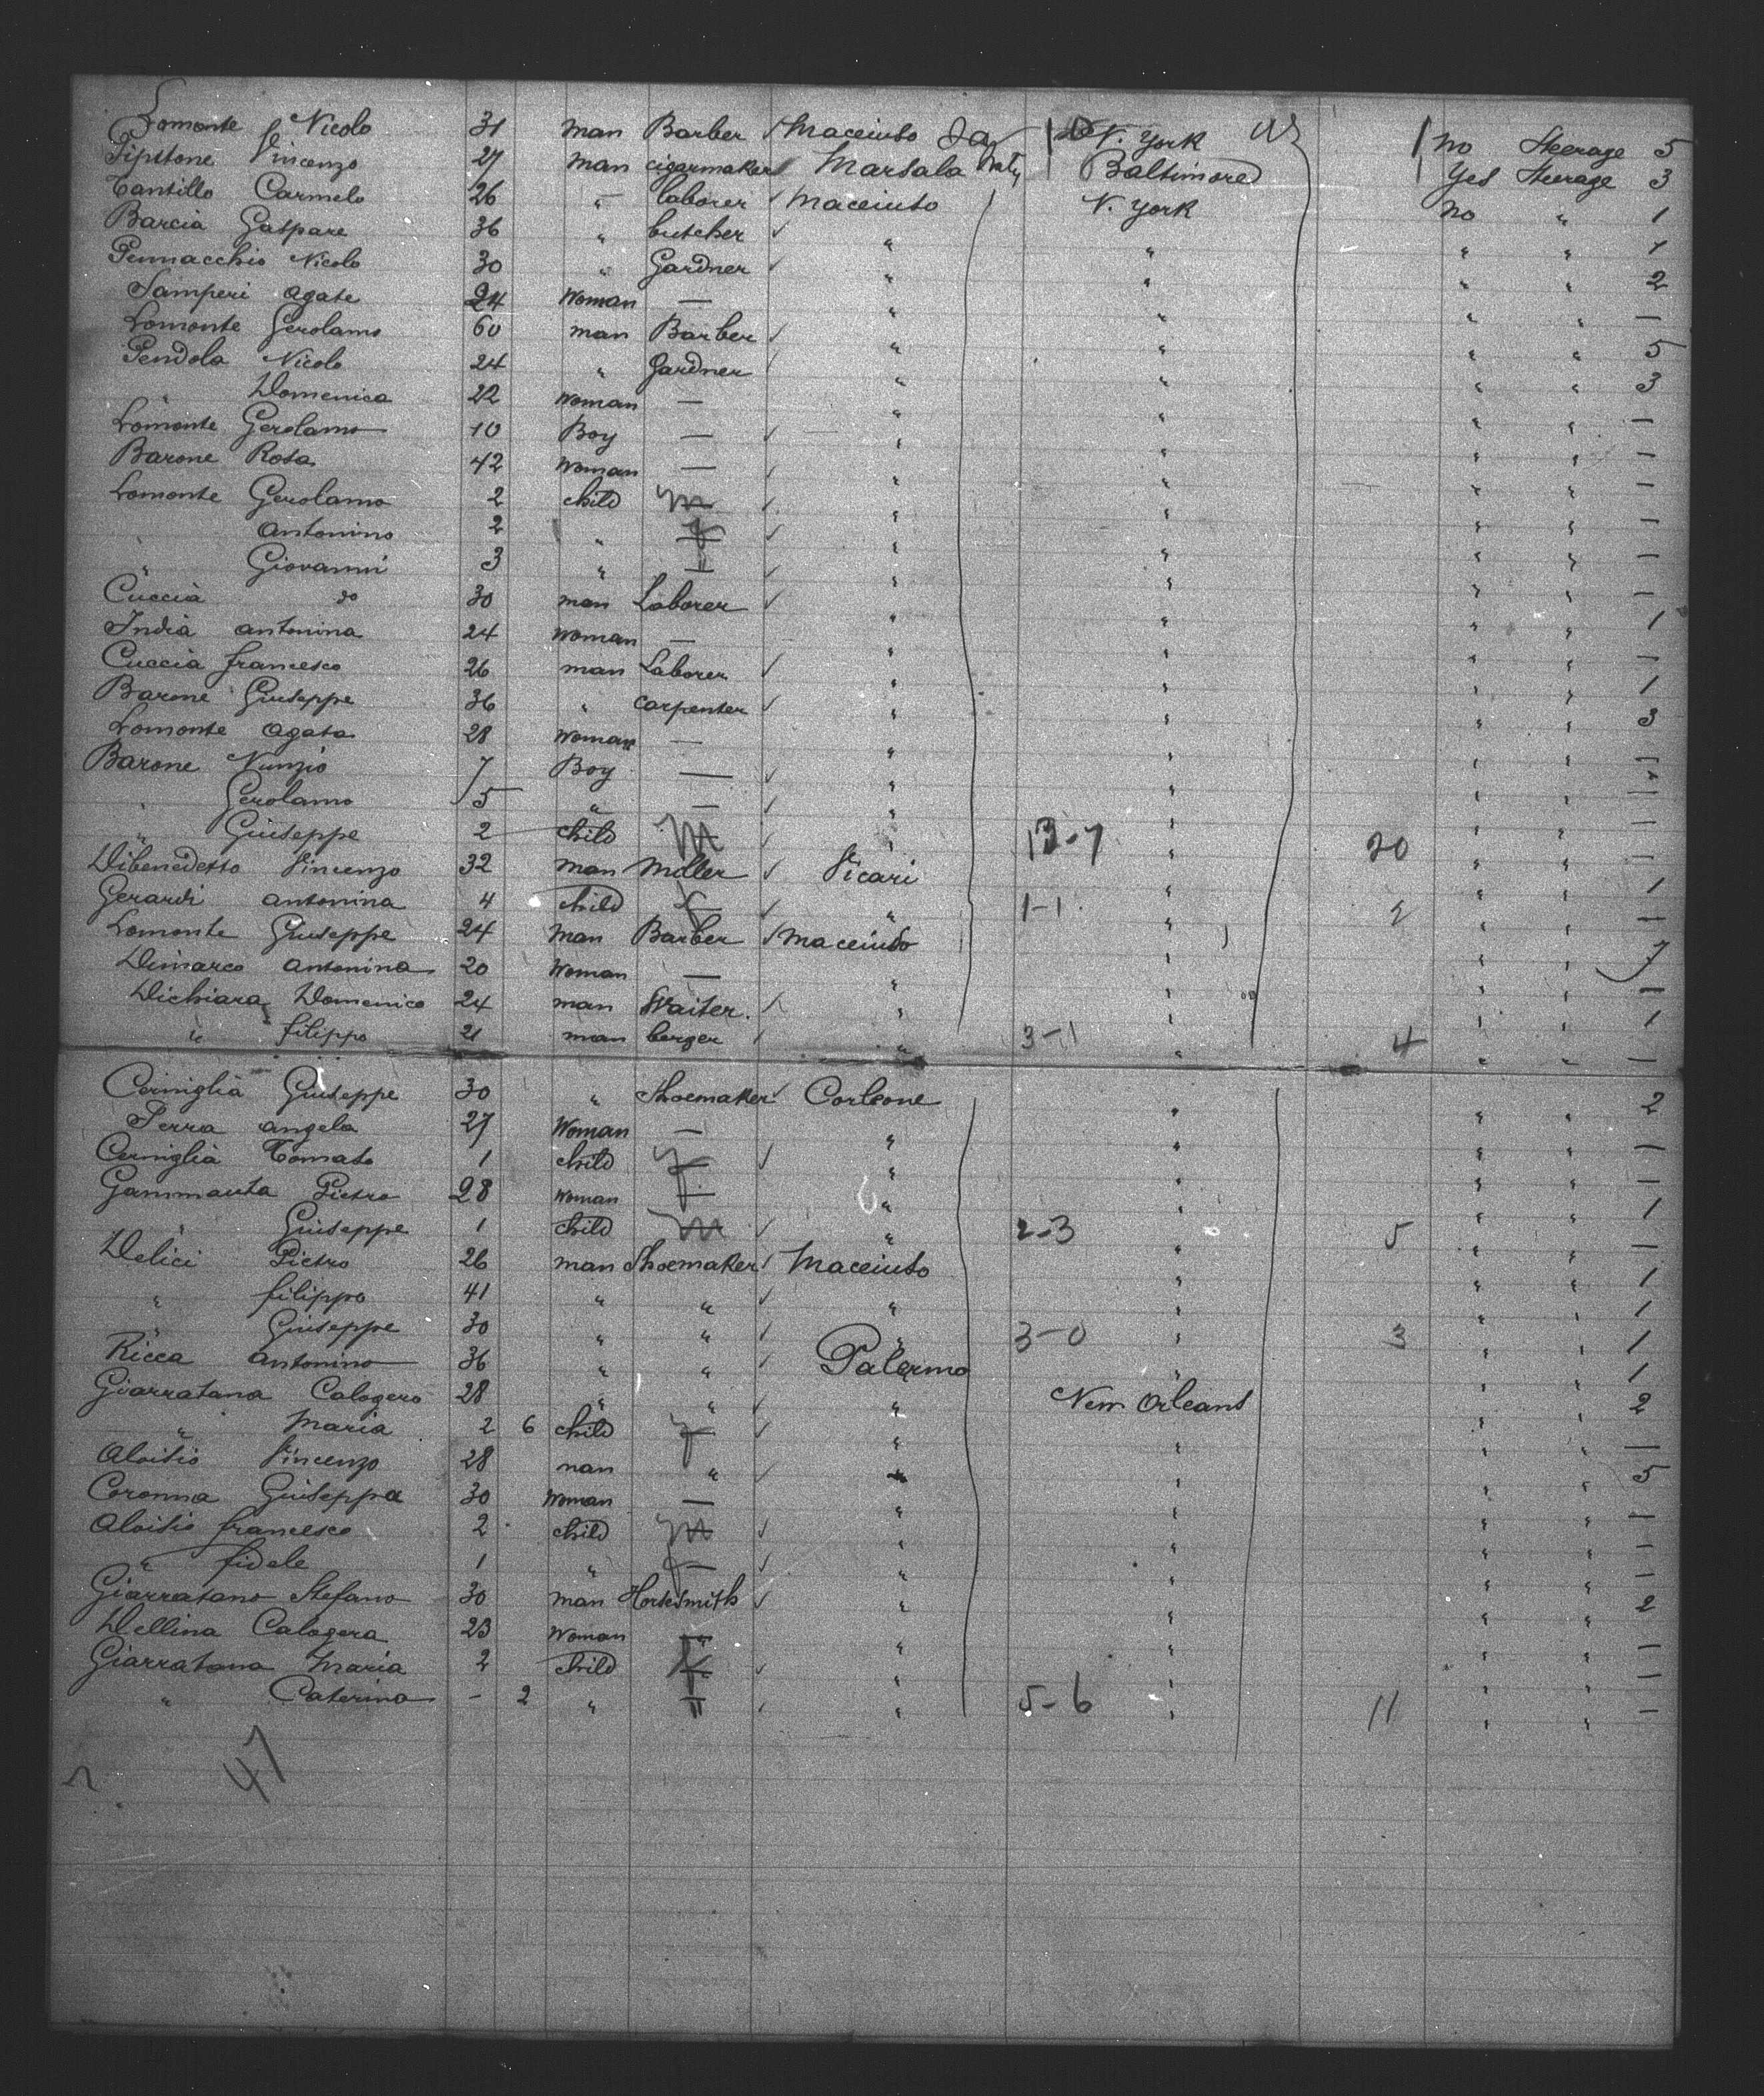 Lomonte Nicolo 31 man Barber ✓ Maceinto N. York no Steerage 5
Pipitone Vincenzo 27 man cigarmaker Marsala Baltimore Yes Steerage 3
Tantillo Carmelo 26 " laborer ✓ Maceinto N. York no " 1
Barcia Gaspare 36 " butcher ✓ " " " " 1
Pennacchio Nicolo 30 " Gardner ✓ " " " " 2
Samperi agate 24 Woman — " " " " —
Lomonte Gerolamo 60 man Barber ✓ " " " " 5
Pendola Nicolo 24 " Gardner ✓ " " " " 3
" Domenica 22 Woman — " " " " —
Lomonte Gerolamo 10 Boy — ✓ " " " " —
Barone Rosa 42 Woman — ✓ " " " " —
Lomonte Gerolamo 2 child m ✓ " " " " —
" Antonino 2 " f ✓ " " " " —
" Giovanni 3 " " ✓ " " " " —
Cuccia do 30 man Laborer ✓ " " " " 1
India antonina 24 Woman — " " " " —
Cuccia francesco 26 man Laborer ✓ " " " " 1
Barone Giuseppe 36 " carpenter ✓ " " " " 3
Lomonte agata 28 Woman — " " " " —
Barone Nunzio 7 Boy — ✓ " " " " —
" Gerolamo 5 " — ✓ " " " " —
" Giuseppe 2 child m ✓ " 13-7 " 20 " " —
Dibenedetto Vincenzo 32 man Miller ✓ Vicari " " " 1
Gerardi antonina 4 child f ✓ " 1-1 " 2 " " —
Lomonte Giuseppe 24 man Barber ✓ Maceinto " " " 7
Dimarco antonina 20 Woman — " " " " —
Dichiara Domenico 24 man Waiter ✓ " " " " 1
" filippo 21 man berger ✓ " 3-1 " 4 " " —
Cerniglia Giuseppe 30 " Shoemaker ✓ Corleone " " " 2
Perra angela 27 Woman — " " " " —
Cerniglia Tomato 1 child f ✓ " " " " —
Gammauta Pietra 28 woman f " " " " 1
" Giuseppe 1 child m ✓ " 2-3 " 5 " " —
Delici Pietro 26 man Shoemaker ✓ Maceinto " " " 1
" filippo 41 " " ✓ " " " " 1
" Giuseppe 30 " " ✓ " 3-0 " 3 " " 1
Ricca Antonino 36 " " ✓ Palermo " " " 1
Giarratana Calogero 28 " " ✓ " New Orleans " " 2
" Maria 2 6 child f ✓ " " " " —
Aloisio Vincenzo 28 man " ✓ " " " " 5
Coronna Giuseppa 30 Woman — " " " " —
Aloisio francesco 2 child m ✓ " " " " —
" fidele 1 " f ✓ " " " " —
Giarratano Stefano 30 man Horsesmith ✓ " " " " 2
Dellina Calogera 23 Woman — " " " " —
Giarratana Maria 2 child f ✓ " " " " —
" Caterina - 2 " " ✓ " 5-6 " 11 " " —
47